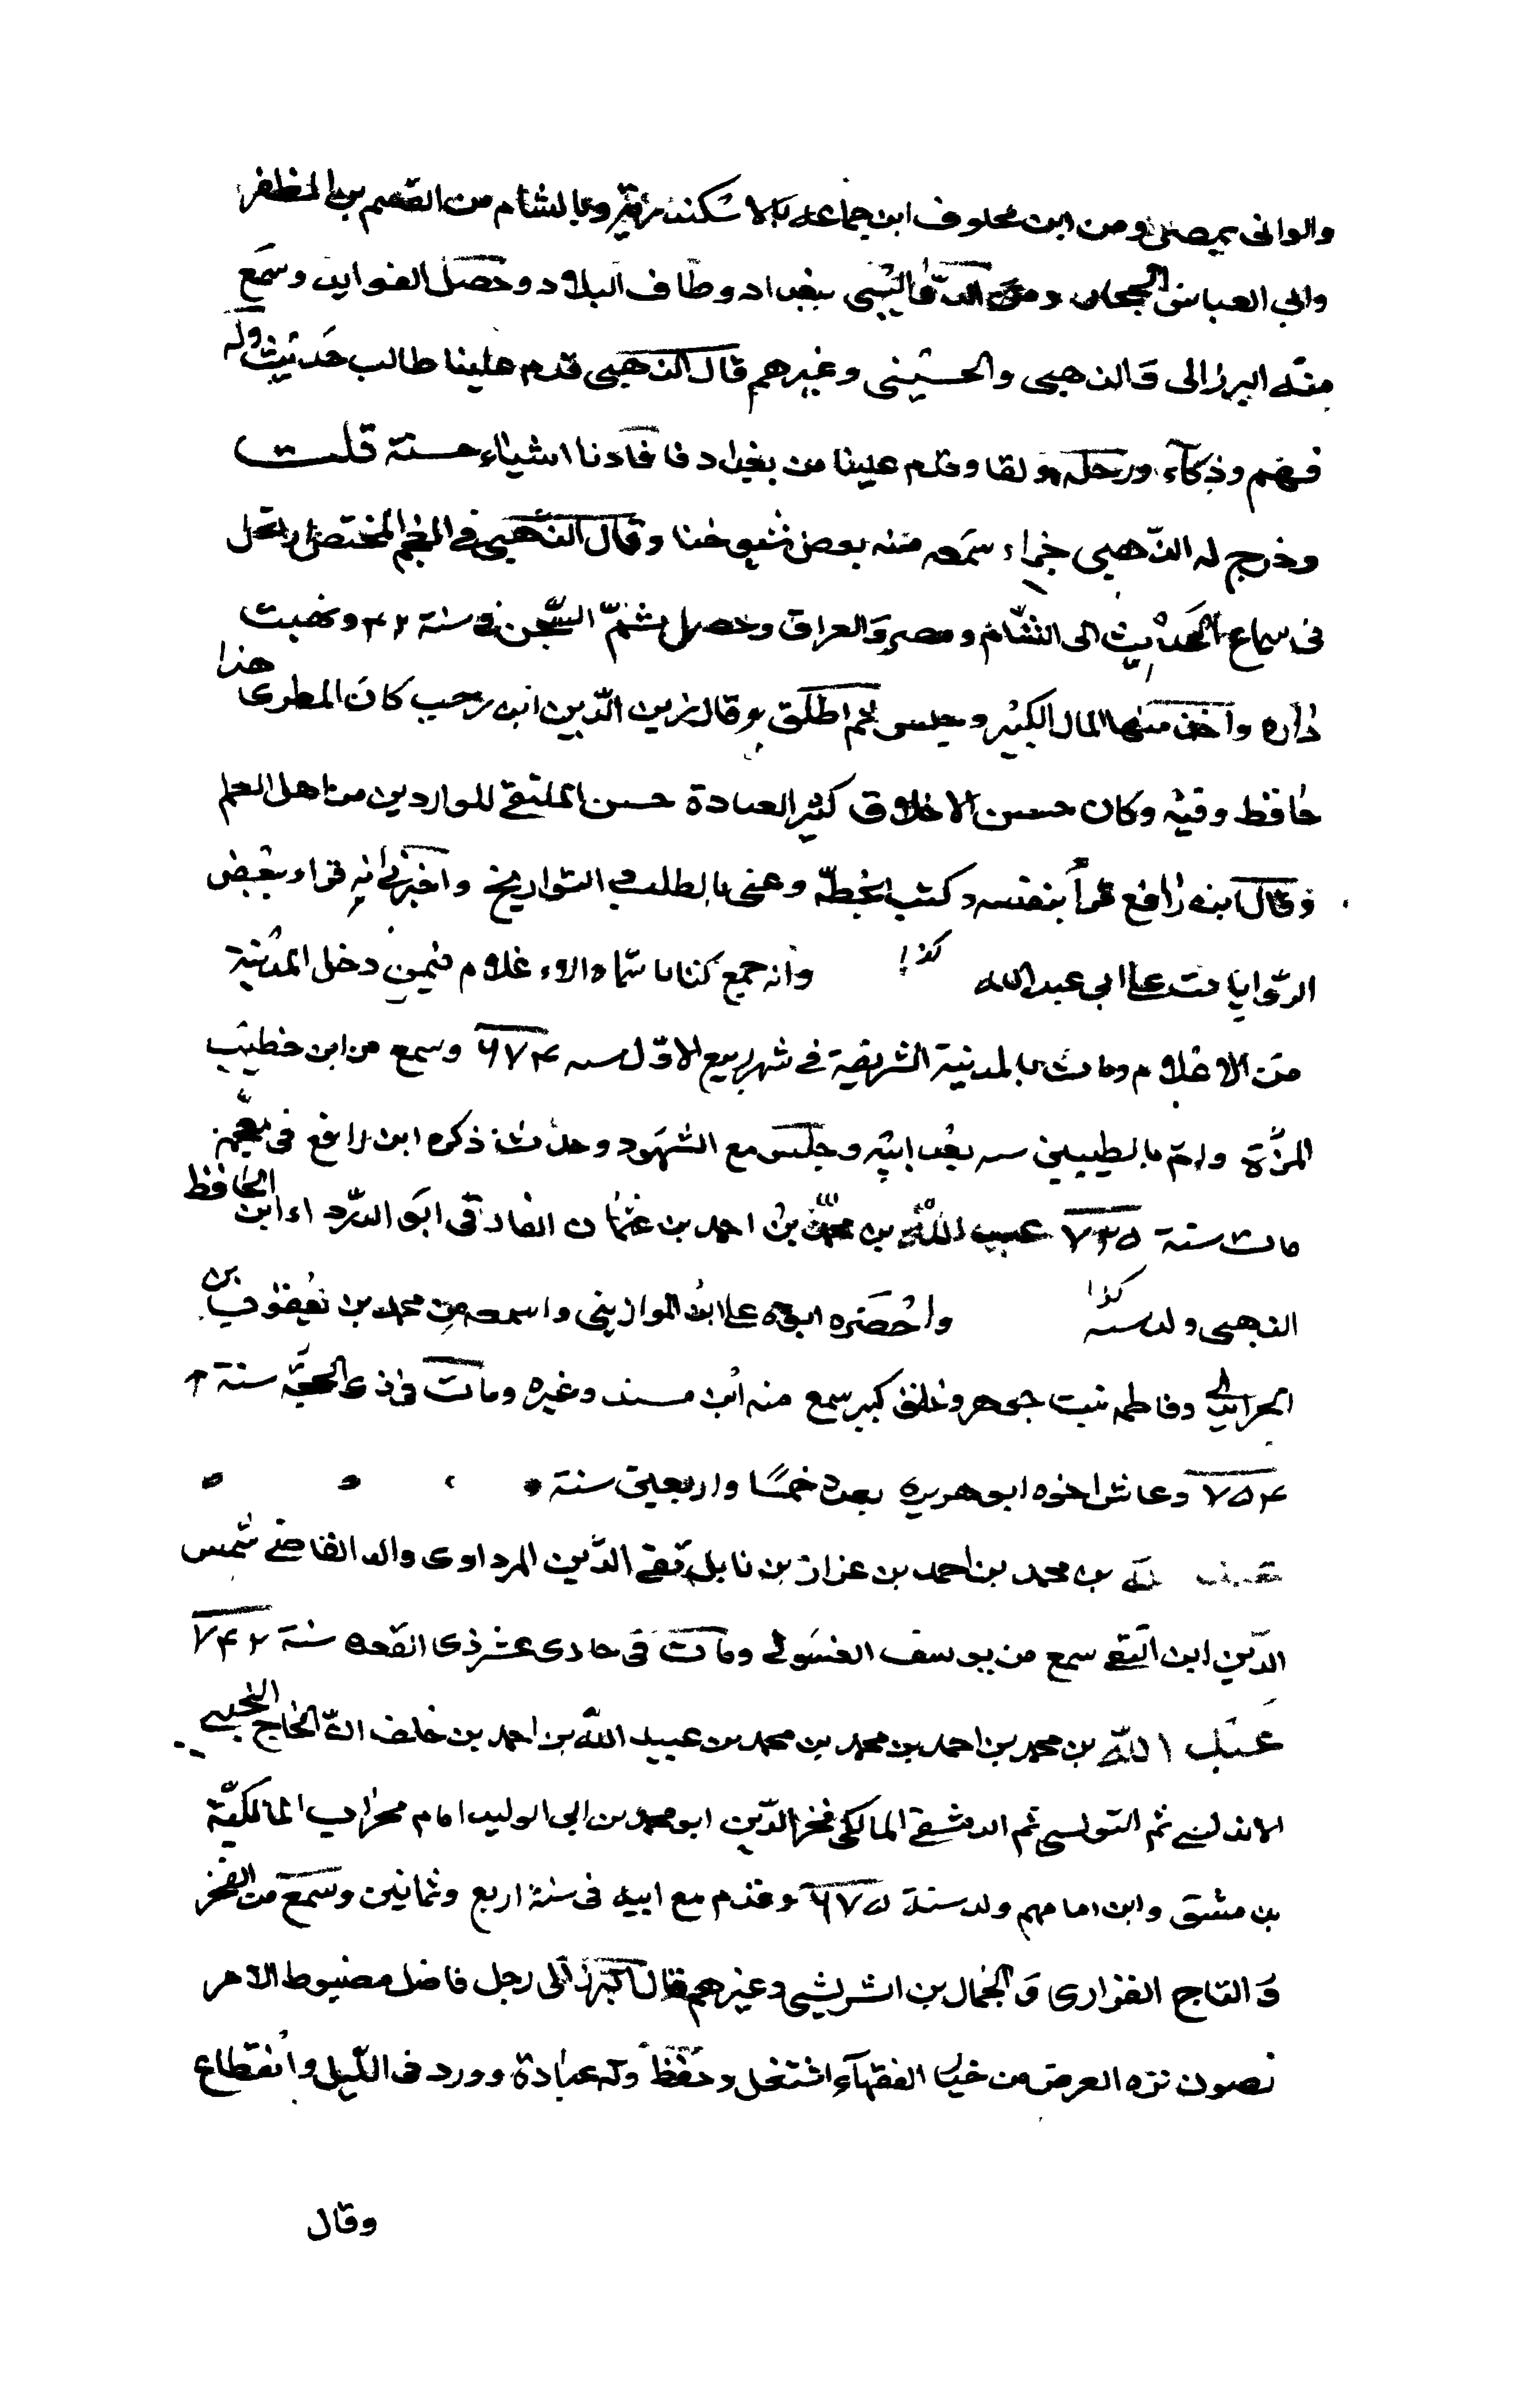 والوانى بمصر ومن ابن مخلوف ابن جماعة بالاسكندرية وبالشام من القسم بن المظفر
وابي العباس الحجار ومن الدقاليبى ببغداد وطاف البلاد وحصل الفوايد وسمع
منه البرزالى والذهبى والحسينى وغيرهم قال الذهبى قدم علينا طالب حديث وله
فهم وذكآء ورحلة ولقا وقدم علينا من بغداد فافادنا اشياء حسنة قلت
وخرج له الذهبى جزاء سمعه منه بعض شيوخنا وقال الذهبى فى المعجم المختص ارتحل
فى سماع الحديث الى الشام ومصر والعراق وحصل ثم السجن فى سنة ٤٢ ونهبت
داره واخذ منها المال الكثير وحبس ثم اطلق وقال زين الدين ابن رجب كان المطرى هذا
حافظ وقته وكان حسن الاخلاق كثير العبادة حسن الملتقى للواردين من اهل العلم
وقال ابن رافع قرأ بنفسه وكتب بخطه وعنى بالطلب والتواريخ واخبرنى انه قراء بعض
الروايات على ابي عبد الله كذا وانه جمع كتابا سماه الاعلام فيمن دخل المدينة
من الاعلام ومات بالمدينة الشريفة فى شهر ربيع الاول سنه ٦٧٤ وسمع من ابن خطيب
المزة وام بالطيبين بعد ابيه وجلس مع الشهود وحدث ذكره ابن رافع فى معجمه
مات سنة ٧٣٥ عبد الله بن محمد بن احمد بن عثمان الفارقى ابو الدرداء ابن الحافظ
الذهبى ولد سنه كذا واحضره ابوه على ابن الموازينى واسمعه من محمد بن يعقوب بن
الجرائدى وفاطمه بنت جوهر وخلق كبير سمع منه ابن مسند وغيره ومات فى ذى الحجة سنة
٧٥٤ وعاش اخوه ابو هريرة بعده خمسًا واربعين سنة
عبد الله بن محمد بن احمد بن عزاز بن نابل تقى الدين المرداوى والد القاضى شمس
الدين ابن التقى سمع من يوسف الغسولى ومات فى حادى عشر ذى القعده سنة ٧٤٢
عبد الله بن محمد بن احمد بن محمد بن محمد بن عبيد الله بن احمد بن خلف الحاج التجيبى
الاندلسى ثم التونسى ثم الدمشقى المالكى فخر الدين ابو محمد بن ابى الوليد امام محراب المالكية
بن مشق وابن امامهم ولد سنة ٦٧٥ وقدم مع ابيه فى سنة اربع وثمانين وسمع من الفخر
والتاج الفزارى والجمال بن الشريشى وغيرهم قال البرزالى رجل فاضل مضبوط الامر
نصون نزه العرض من خيار الفقهآء اشتغل وحفظ وله عبادة وورد فى الليل وانقطاع
وقال